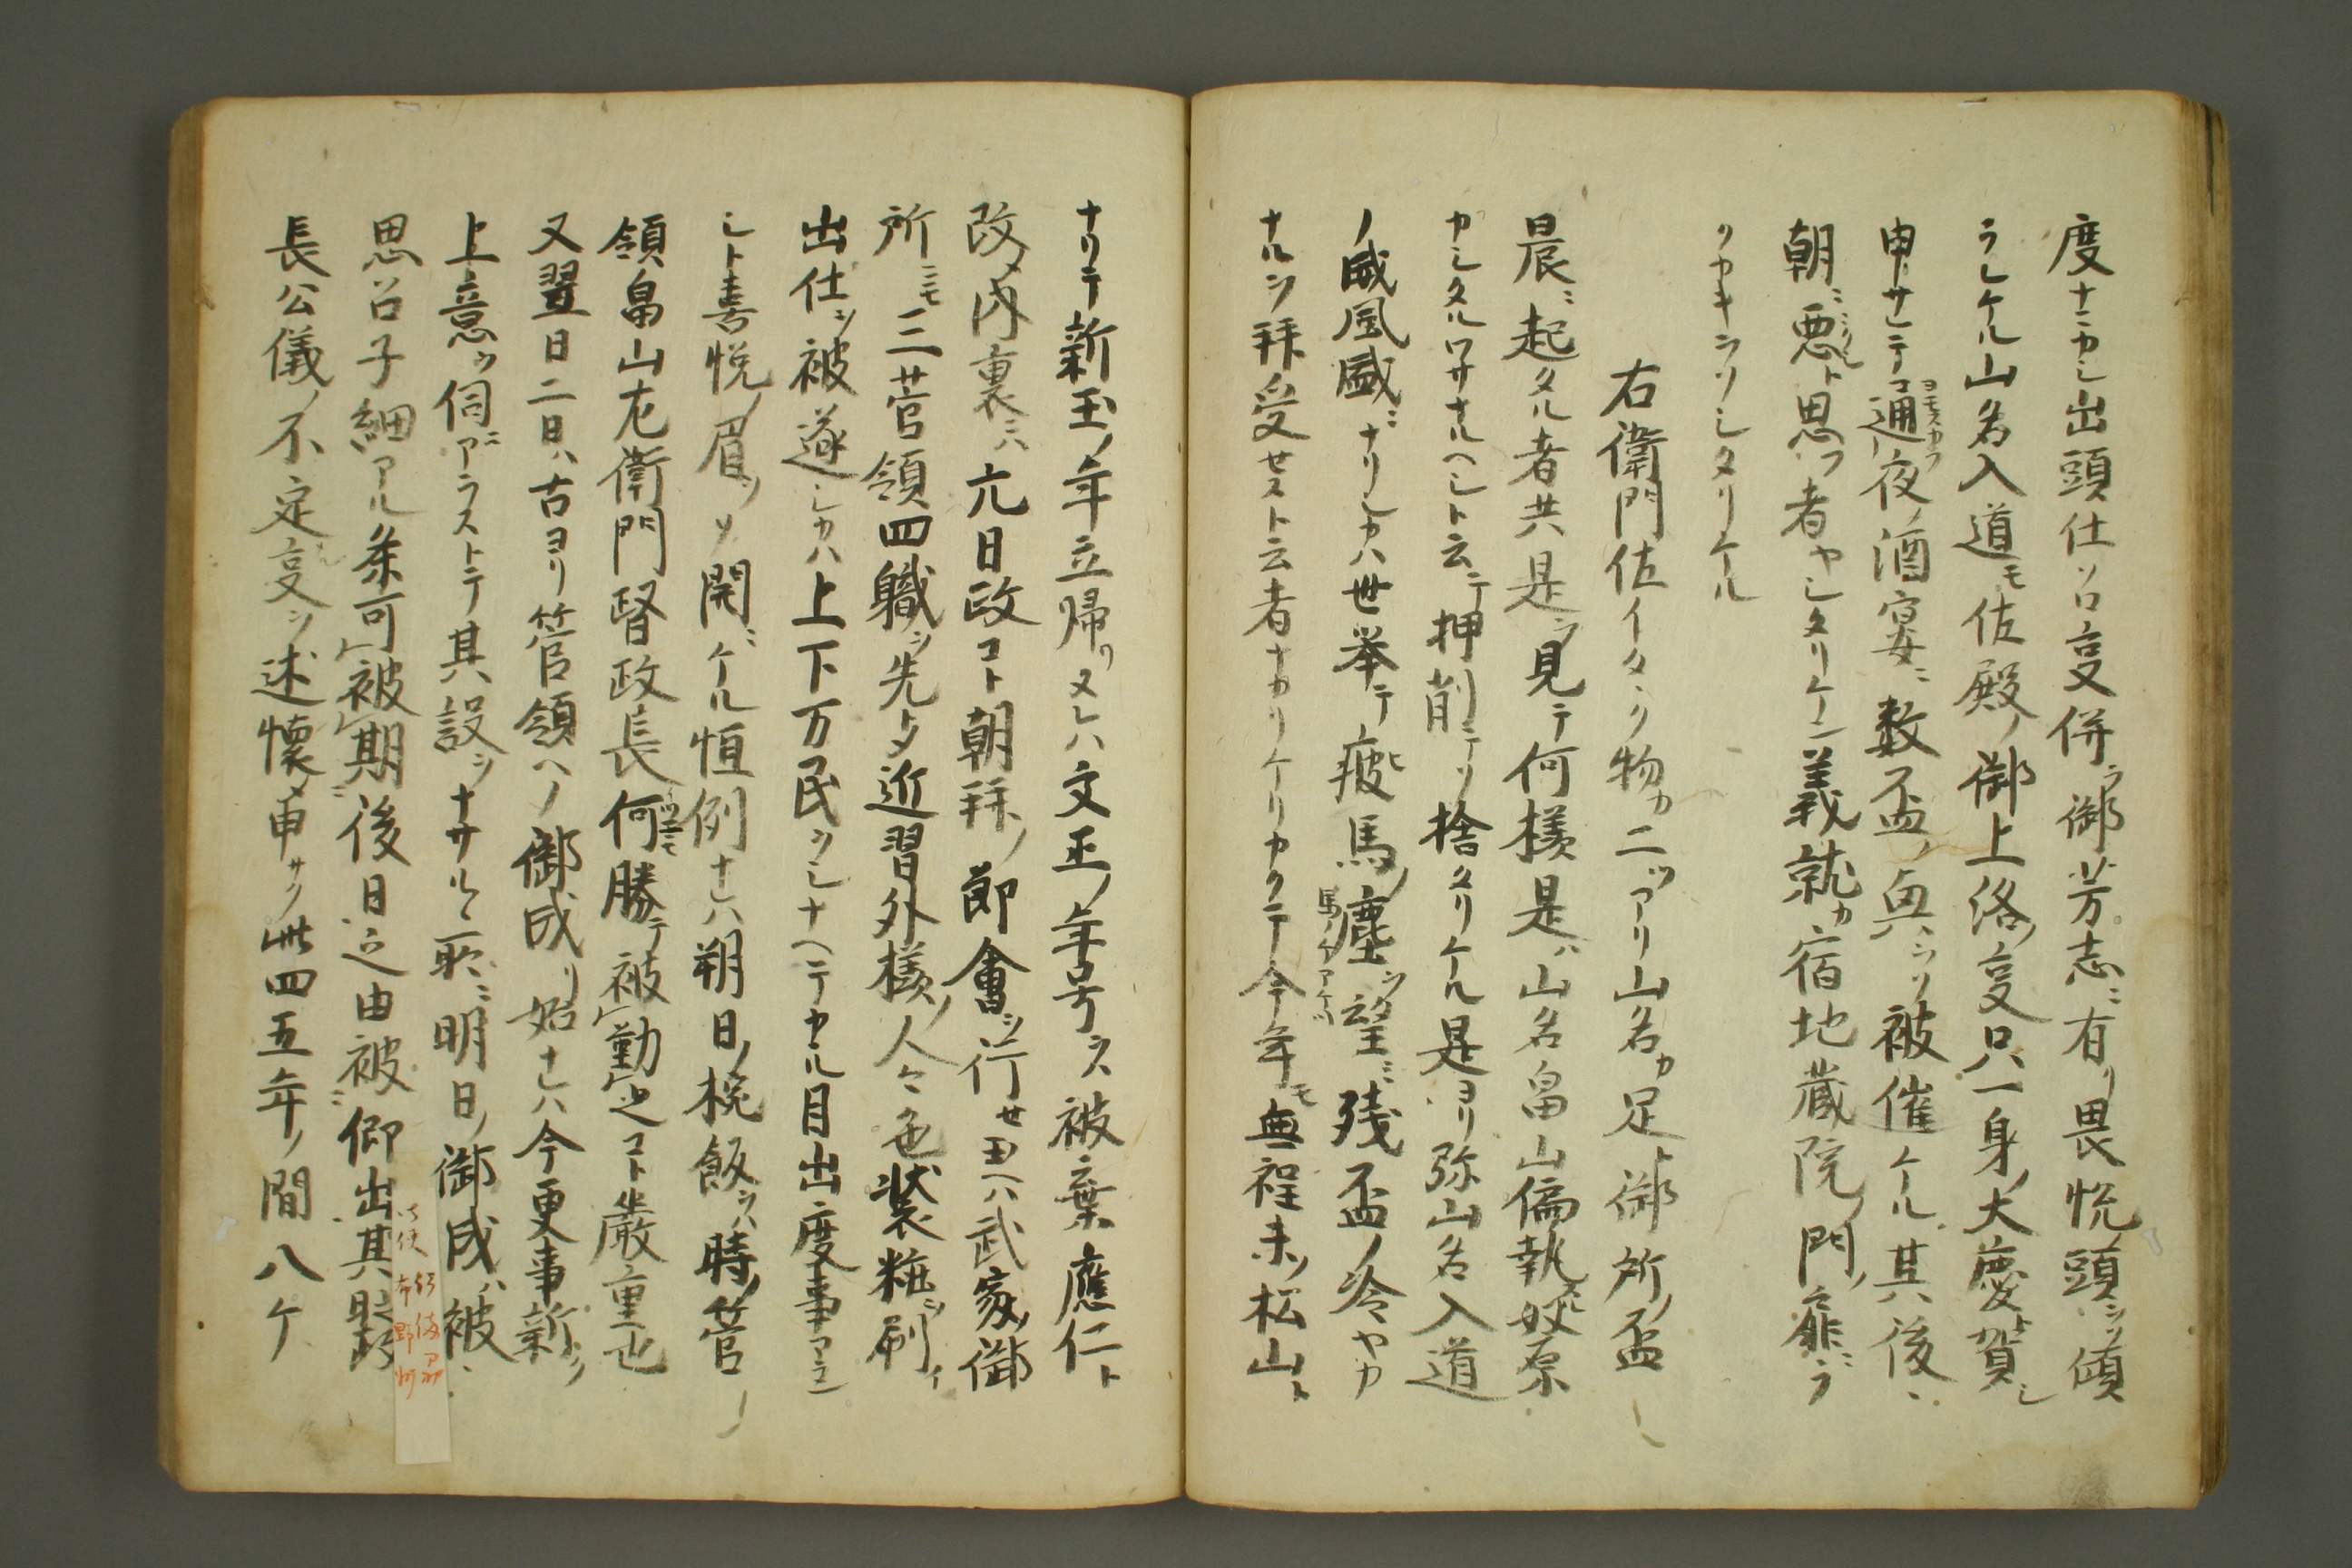 度ナニカシ出頭仕ソロ叓併ラ御芳志ニ有リ畏悦頭ヲソ傾
ラレケル山名入道モ佐殿ノ御上洛ノ叓只一身ノ大慶ト賀シ
申サレテ通夜ノ酒宴ニ数盃ノ興ヲソ被催ケル其後ハ
ヨモスカラ
朝ニ悪シト思フ者ヤシタリケン義就カ宿地蔵院ノ門ノ扉ニラ
ニクシ
クカキニソシタリケル
右衛門佐イタヽク物カ二ツアリ山名カ足ト御所ノ盃
晨ニ起タル者共是ヲ見テ何様是ハ山名畠山偏執ノ奴原
カシタルワサナルヘシト云テ押削テソ捨タリケル是ヨリ弥山名入道
ノ威風盛ニナリシカハ世挙テ疲馬ノ塵ヲ望ミ残盃ノ冷ヤカ
ナルヲ拝受セスト云者ナカリケリカクテ今年モ無程末ノ松山ト
ナリテ新玉ノ年立帰リヌレハ文正ノ年号ヲハ被棄應仁ト
改メ内裏ニハ元日政コト朝拝ノ節會ヲ行セ玉ヘハ武家ノ御
所ニモ三菅領四職ヲ先タ近習外様ノ人々色装粧ヲ刷イ
出仕ヲ被遂シカハ上下万民ヲシナヘテカヽル目出度事アラン
シト喜悦ノ眉ヲソ開ニケル恒例ナレハ朔日ノ椀飯ヲハ時ノ管
領畠山左衛門督政長何勝テ被勤之コト厳重也
イツニモ
又翌日二日ハ古ヨリ管領ヘノ御成リ始ナレハ今更事新シク
上意ヲ伺ニアラストテ其設ヲナサルヽ所ニ明日ノ御成ハ被
思召子細アル条可被期後日之由被仰出其
長公儀ノ不定叓ヲ述懐メ申サク此四五年ノ間八ケ